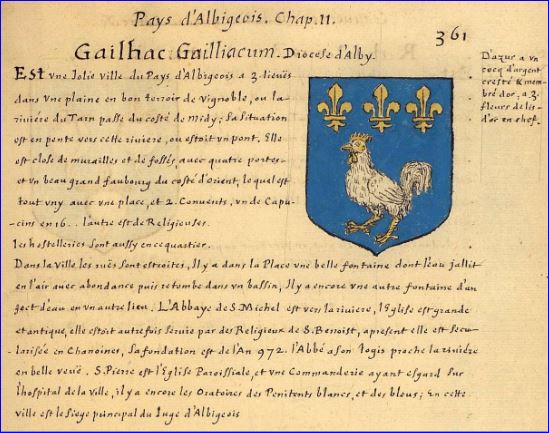 Pays d'Albigeois. Chap. 11.
361
Gailhac. Gailliacum. Diocese d'Alby.
D'azur a vn
cocq d'argent
cresté & mem-
bré d'or, a 3.
fleurs de lis
d'or en chef.
Est vne Jolie ville du Pays d'Albigeois a 3. lieuës
dans vne plaine en bon terroir de Vignoble, ou la
riviére du Tarn passe du costé de midy; sa situation
est en pente vers cette riviere, ou estoit vn pont. Elle
est close de murailles et de fossés, avec quatre portes-
et vn beau grand fauboug du costé d'Orient, lequel est
tout vny avec vne place, et 2. Convents, vn de Capu-
cins en 16.. l'autre est de Religieuses.
les hostelleries sont aussy en ce quartier.
Dans la ville les ruës sont estroites, Il y a dans la Place vne belle fontaine dont l'eau jallit
en l'air avec abondance puis retombe dans vn bassin, Il y a encore vne autre fontaine d'un
ject d'eau en vn autre lieu. L'Abbaye de S. Michel est vers la riviere, l'Eglise est grande
et antique, elle estoit autrefois servie par des Religieux de S. Benoist, apresent elle est secu
-larisée en Chanoines, sa fondation est de l'An 972. l'Abbé a son logis proche la riviére
en belle veuë. S. Pierre est l'Eglise Paroissiale, et vne Commanderie ayant esgard sur
l'hospital de la ville, il y a encore les Oratoires des Penitents blancs, et des bleus; En cette
ville est le siege principal du Iuge d'Albigeois